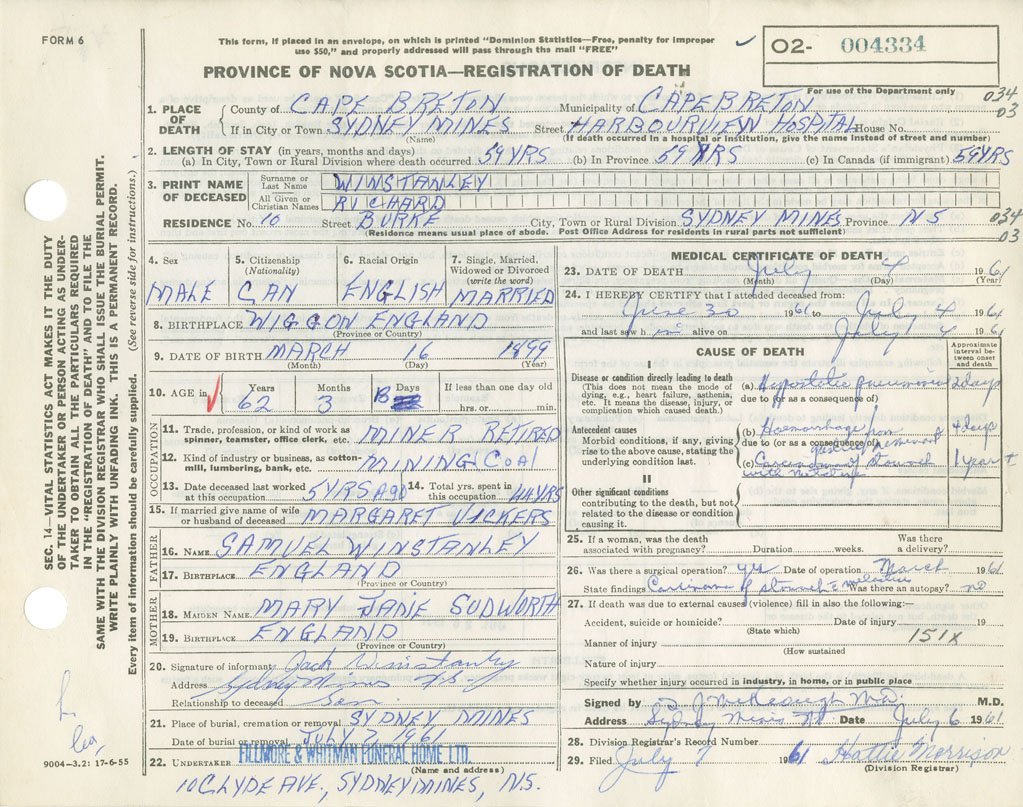 FORM 6
This form, if placed in an envelope, on which is printed "Dominion Statistics—Free, penalty for improper
use $50," and properly addressed will pass through the mail "FREE"
✓ 02- 004334
PROVINCE OF NOVA SCOTIA—REGISTRATION OF DEATH
For use of the Department only
SEC. 14—VITAL STATISTICS ACT MAKES IT THE DUTY
OF THE UNDERTAKER OR PERSON ACTING AS UNDER-
TAKER TO OBTAIN ALL THE PARTICULARS REQUIRED
IN THE "REGISTRATION OF DEATH" AND TO FILE THE
SAME WITH THE DIVISION REGISTRAR WHO SHALL ISSUE THE BURIAL PERMIT.
WRITE PLAINLY WITH UNFADING INK. THIS IS A PERMANENT RECORD.
Every item of information should be carefully supplied. (See reverse side for instructions.)
1. PLACE OF DEATH County of CAPE BRETON Municipality of CAPE BRETON 034 03
If in City or Town SYDNEY MINES Street HARBOURVIEW HOSPITAL House No.
(Name) (If death occurred in a hospital or institution, give the name instead of street and number)
2. LENGTH OF STAY (in years, months and days)
(a) In City, Town or Rural Division where death occurred 59 YRS (b) In Province 59 YRS (c) In Canada (if immigrant) 59 YRS
3. PRINT NAME OF DECEASED Surname or Last Name WINSTANLEY
All Given or Christian Names RICHARD
RESIDENCE No. 10 Street BURKE City, Town or Rural Division SYDNEY MINES Province NS 034 03
(Residence means usual place of abode. Post Office Address for residents in rural parts not sufficient)
4. Sex MALE
5. Citizenship (Nationality) CAN
6. Racial Origin ENGLISH
7. Single, Married, Widowed or Divorced (write the word) MARRIED
8. BIRTHPLACE WIGGON ENGLAND
(Province or Country)
9. DATE OF BIRTH MARCH 16 1899
(Month) (Day) (Year)
10. AGE in Years 62 Months 3 Days If less than one day old hrs. or min.
OCCUPATION
11. Trade, profession, or kind of work as spinner, teamster, office clerk, etc. MINER RETIRED
12. Kind of industry or business, as cotton-mill, lumbering, bank, etc. MINING COAL
13. Date deceased last worked at this occupation 5 YRS AGO 14. Total yrs. spent in this occupation 44 YRS
15. If married give name of wife or husband of deceased MARGARET VICKERS
FATHER
16. NAME SAMUEL WINSTANLEY
17. BIRTHPLACE ENGLAND
(Province or Country)
MOTHER
18. MAIDEN NAME MARY JANE SUDWORTH
19. BIRTHPLACE ENGLAND
(Province or Country)
20. Signature of informant Jack Winstanley
Address Sydney Mines N.S.
Relationship to deceased Son
21. Place of burial, cremation or removal SYDNEY MINES
Date of burial or removal JULY 7 1961
22. UNDERTAKER FILLMORE & WHITMAN FUNERAL HOME LTD.
(Name and address)
10 CLYDE AVE., SYDNEY MINES, N.S.
9004—3.2: 17-6-55
MEDICAL CERTIFICATE OF DEATH
23. DATE OF DEATH July 4 1961
(Month) (Day) (Year)
24. I HEREBY CERTIFY that I attended deceased from:
June 30 1961 to July 4 196
and last saw h im alive on July 4 1961
CAUSE OF DEATH
Approximate interval between onset and death
I
Disease or condition directly leading to death
(This does not mean the mode of dying, e.g., heart failure, asthenia, etc. It means the disease, injury, or complication which caused death.)
(a) Hypostatic pneumonia 2 days
due to (or as a consequence of)
Antecedent causes
Morbid conditions, if any, giving rise to the above cause, stating the underlying condition last.
(b) Haemorrhage from 4 days
due to (or as a consequence of)
(c) Carcinoma of stomach 1 year +
with
II
Other significant conditions
contributing to the death, but not related to the disease or condition causing it.
25. If a woman, was the death associated with pregnancy? Duration weeks. Was there a delivery?
26. Was there a surgical operation? yes Date of operation March 1961
State findings Carcinoma of stomach Was there an autopsy? no
27. If death was due to external causes (violence) fill in also the following:—
Accident, suicide or homicide? Date of injury 19
(State which)
151X
Manner of injury
(How sustained
Nature of injury
Specify whether injury occurred in industry, in home, or in public place
Signed by M.D. M.D.
Address Sydney Mines NS Date July 6 1961
28. Division Registrar's Record Number
29. Filed July 7 1961 Hattie Morrison
(Division Registrar)